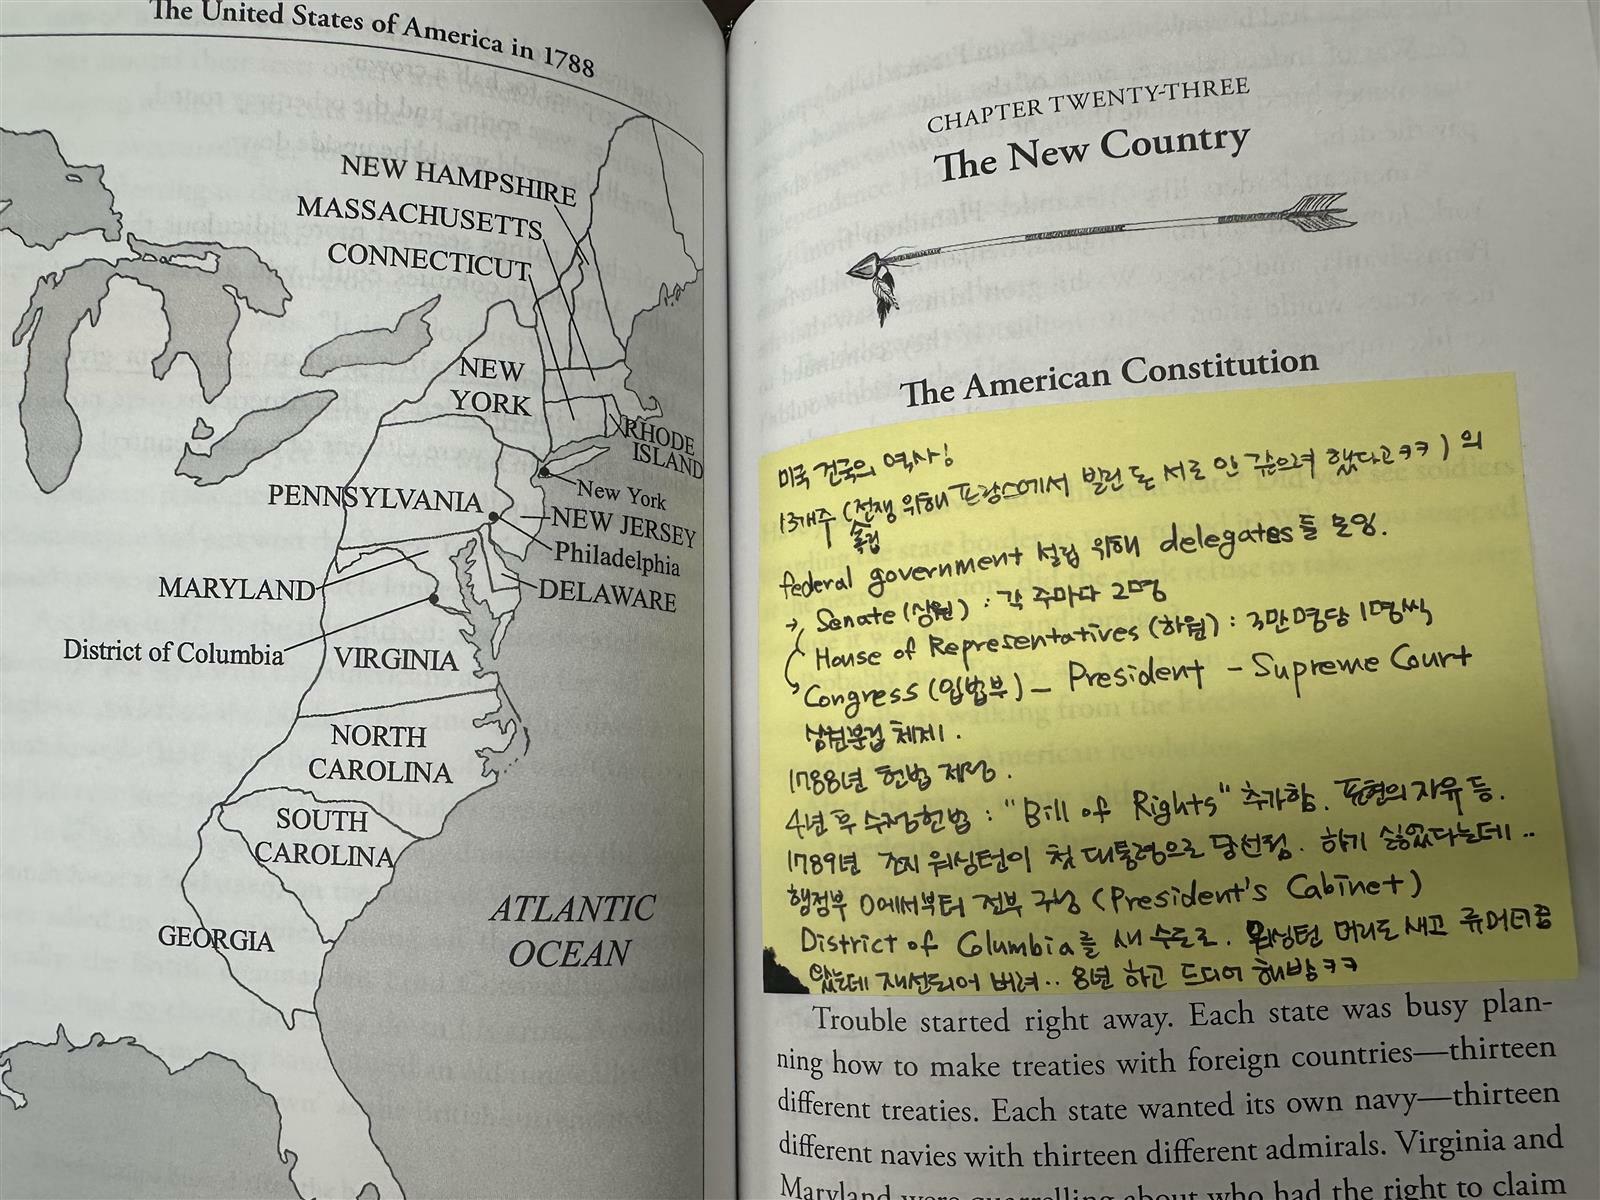 The United States of America in 1788
NEW HAMPSHIRE
MASSACHUSETTS
CONNECTICUT
NEW
YORK
RHODE
ISLAND
New York
PENNSYLVANIA
NEW JERSEY
Philadelphia
MARYLAND
DELAWARE
District of Columbia
VIRGINIA
NORTH
CAROLINA
SOUTH
CAROLINA
GEORGIA
ATLANTIC
OCEAN
CHAPTER TWENTY-THREE
The New Country
The American Constitution
미국 건국의 역사!
13개주 (전쟁 위해 프랑스에서 빌린 돈 서로 안 갚으려 했다고ㅋㅋ) 의
독립
federal government 설립 위해 delegates들 모임.
→ Senate (상원) : 각 주마다 2명
House of Representatives (하원) : 3만명당 1명씩
Congress (입법부) – President – Supreme Court
삼권분립 체제.
1788년 헌법 제정.
4년 후 수정헌법 : "Bill of Rights" 추가함. 표현의 자유 등.
1789년 조지 워싱턴이 첫 대통령으로 당선됨. 하기 싫었다는데..
행정부 0에서부터 전부 구성 (President's Cabinet)
District of Columbia를 새 수도로. 워싱턴 머리도 새고 류머티즘
있는데 재선되어 버려.. 8년 하고 드디어 해방ㅋㅋ
Trouble started right away. Each state was busy plan-
ning how to make treaties with foreign countries—thirteen
different treaties. Each state wanted its own navy—thirteen
different navies with thirteen different admirals. Virginia and
Maryland were quarrelling about who had the right to claim